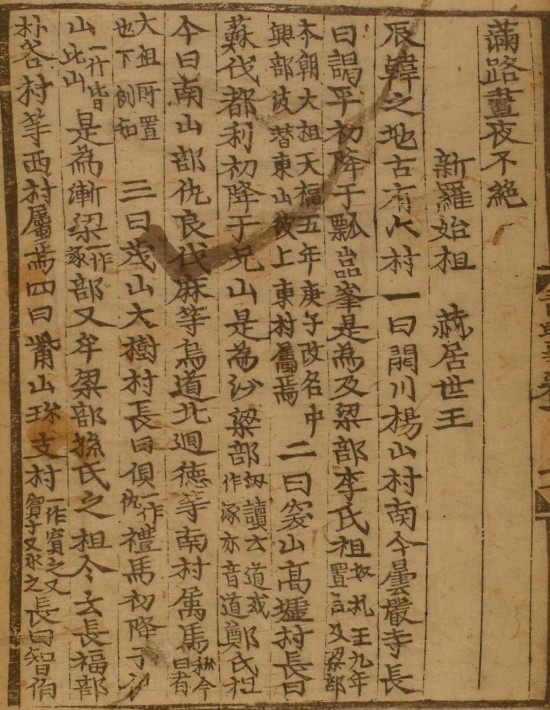 滿路晝夜不絶
新羅始祖 赫居世王
辰韓之地古有六村一曰閼川楊山村南今曇嚴寺長
曰謁平初降于瓢嵓峯是為及梁部李氏祖奴礼王九年置名及梁部
本朝大祖天福五年庚子改名中興部波替東山彼上東村屬焉二曰突山高墟村長曰
蘇伐都利初降于兄山是為沙梁部梁讀云道或作涿亦音道鄭氏祖
今曰南山部仇良伐麻等烏道北迴德等南村屬焉稱今曰者
大祖所置也下例知三曰茂山大樹村長曰俱一作仇禮馬初降于伊
山一作皆比山是為漸梁一作涿部又牟梁部孫氏之祖今云長福部
朴谷村等西村屬焉四曰觜山珍支村一作賓之又賓子又氷之長曰智伯